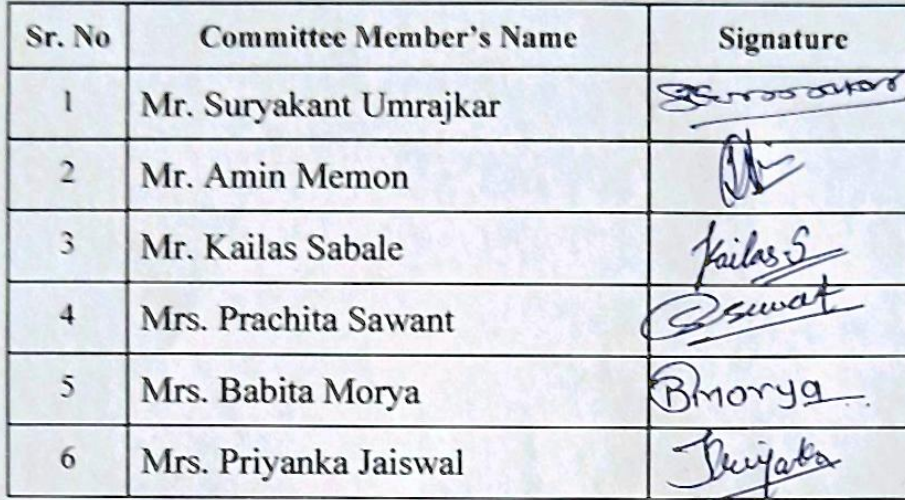 Sr. No Committee Member's Name Signature
1 Mr. Suryakant Umrajkar
2 Mr. Amin Memon
3 Mr. Kailas Sabale Kailas S
4 Mrs. Prachita Sawant
5 Mrs. Babita Morya Bmorya
6 Mrs. Priyanka Jaiswal